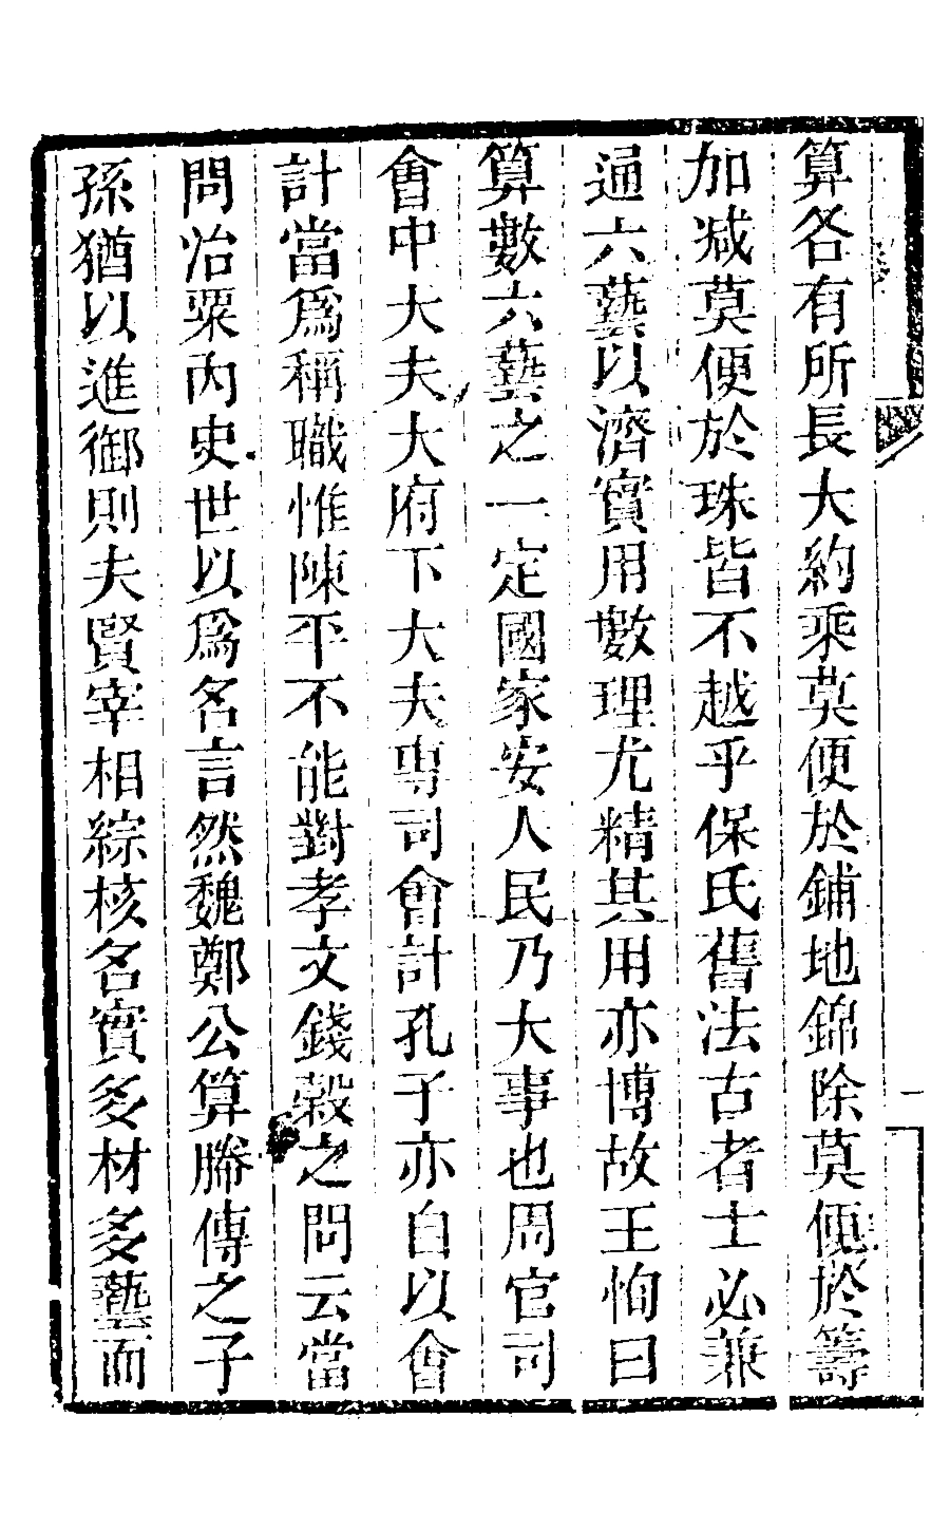 算各有所長大約乘莫便於鋪地錦除莫便於籌
加减莫便於珠皆不越乎保氏舊法古者士必兼
通六藝以濟實用數理尤精其用亦博故王恂曰
算數六藝之一定國家安人民乃大事也周官司
會中大夫大府下大夫專司會計孔子亦自以會
計當爲稱職惟陳平不能對孝文錢穀之問云當
問治粟內史世以爲名言然魏鄭公算勝傳之子
孫猶以進御則夫賢宰相綜核名實多材多藝而